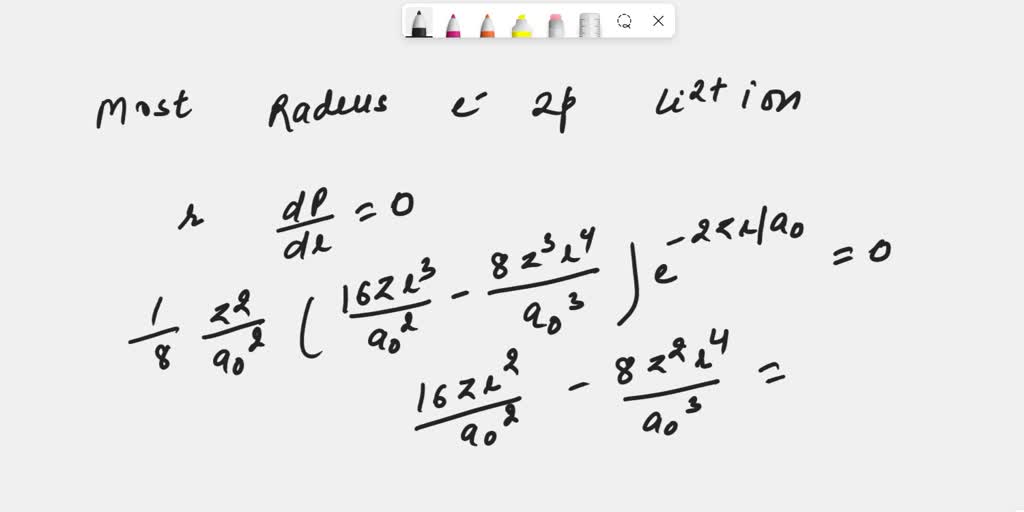 Most Radeus e⁻ 2p Li²⁺ ion
r dP/dr = 0
1/8 z²/a₀² (16Zr³/a₀² - 8z³r⁴/a₀³) e^(-2zr/a₀) = 0
16zr²/a₀² - 8z²r⁴/a₀³ =